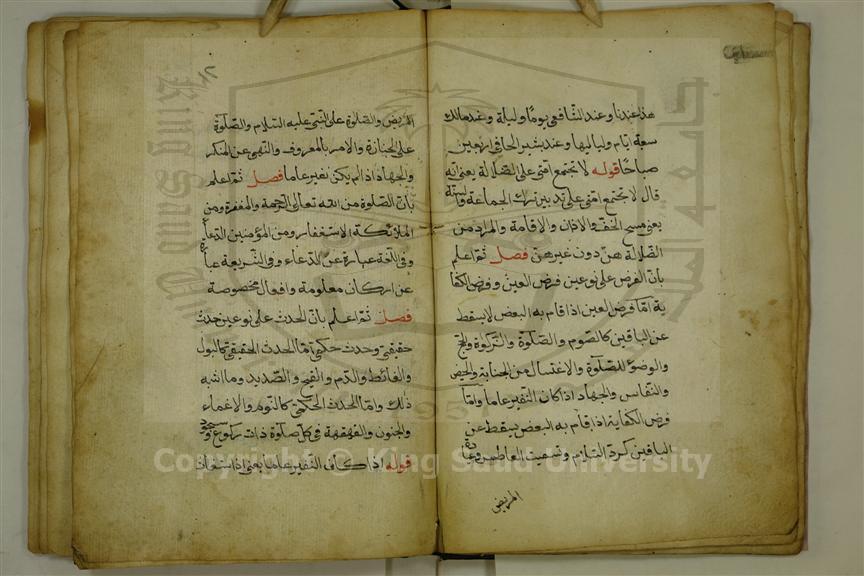 هذا عندنا وعند الشافعي يوما وليلة وعند مالك
سبعة ايام ولياليها وعند بشير الحافي اربعين
صباحا قوله لا تجتمع امتي على الضلالة يعني انه
قال لا تجتمع امتي على ترك الجماعة
يعني مسح الخف والاذان والاقامة والمراد من
الضلالة هن دون غيرهن فصل ثم اعلم
بان الفرض على نوعين فرض العين وفرض الكفا
ية اما فرض العين اذا قام به البعض لا يسقط
عن الباقين كالصوم والصلوة والزكوة والحج
والوضوء للصلوة والاغتسال من الجنابة والحيض
والنفاس والجهاد اذا كان النفير عاما واما
فرض الكفاية اذا قام به البعض يسقط عن
الباقين كرد السلام وتسميت العاطس وعيادة
المريض
المريض والصلوة على النبي عليه السلام والصلوة
على الجنازة والامر بالمعروف والنهي عن المنكر
والجهاد اذا لم يكن نفير عاما فصل ثم اعلم
بان الصلوة من الله تعالى الرحمة والمغفرة ومن
الملائكة الاستغفار ومن المؤمنين الدعاء
وفي اللغة عبارة عن الدعاء وفي الشريعة عبارة
عن اركان معلومة وافعال مخصوصة
فصل ثم اعلم بان الحدث على نوعين حدث
حقيقي وحدث حكمي اما الحدث الحقيقي كالبول
والغائط والدم والقيح والصديد وما اشبه
ذلك واما الحدث الحكمي كالنوم والاغماء
والجنون والقهقهة في كل صلوة ذات ركوع وسجود
قوله اذا كان النفير عاما يعني اذا استغاث
Copyright © King Saud University
King Saud U
جامعة الملك
1957